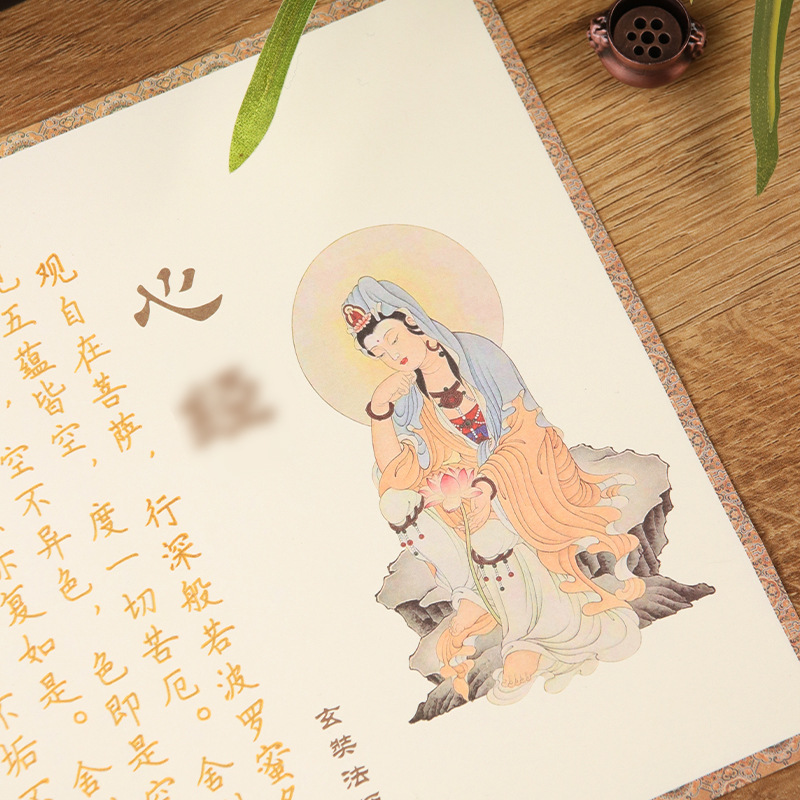 心
玄奘法
观自在菩萨,行深般若波罗蜜
见五蕴皆空,度一切苦厄。舍
,空不异色,色即是空
亦复如是。舍
不垢不